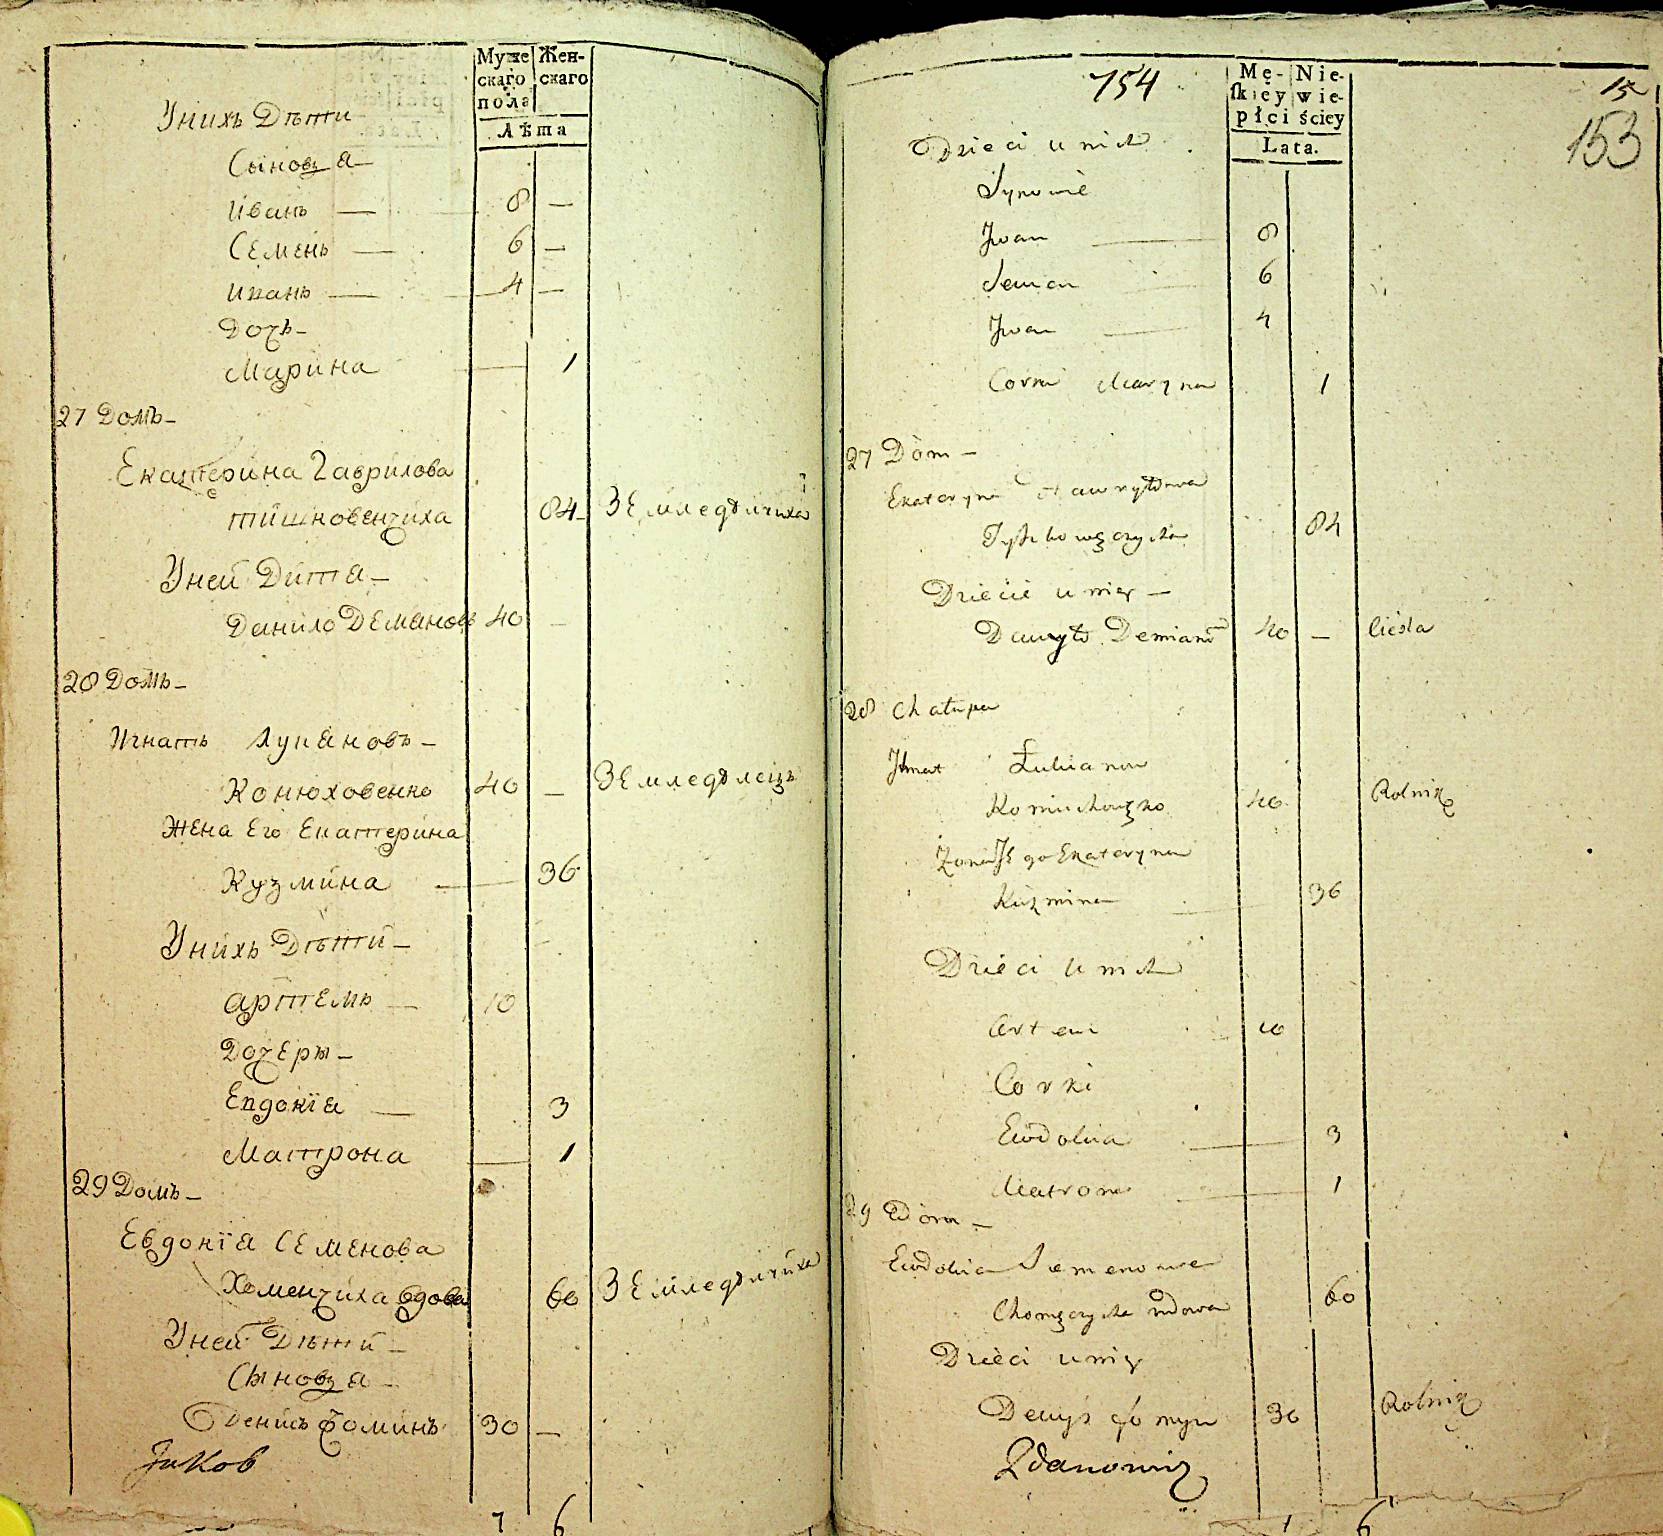 Муже Жен-
скаго скаго
пола
Лѣта
Унихъ Дѣти
Сыновья
Иванъ — 8 —
Семенъ — 6 —
Иванъ — 4 —
Дочь-
Марина 1
27 Домъ-
Екатерина Гаврилова
84- Земледѣлчиха
Уней Дитя-
Данило Демяновъ 40 -
28 Домъ-
Игнатъ Лукяновъ-
Конюховенко 40 — Земледѣлецъ
Жена Его Екатерина
Кузмина — 36
Унихъ Дѣти-
Артемъ — 10
Дочеры-
Евдокїя — 3
Матрона 1
29 Домъ-
Евдокїя Семенова
Хоменчиха вдова 60 Земледѣлчиха
Уней Дѣти-
Сыновья-
Денисъ Фоминъ 30 —
7 6
754
Mę- Nie-
skiey wie-
płci ściey
Lata.
15
153
Dzieci u nich
Synowie
Jwan — 8
Semen 6
Jwan — 4
Corka Maryna 1
27 Dom-
Ekateryna Hawryłowa
Tyszkowęczycha 84
Dziecie u niey-
Danyło Demianow 40 — Cieśla
28 Chałupa
Jhnat Łukianow
Koniuchowęko 40 Rolnik
Żona Jego Ekateryna
Kuzmina 36
Dzieci u nich
Artem 10
Corki
Ewdokia 3
Matrona 1
29 Dom-
Ewdokia Semenowa
Chomęczycha wdowa 60
Dzieci u niey
Denys Fomyn 30 Rolnik
Zdanowicz
6